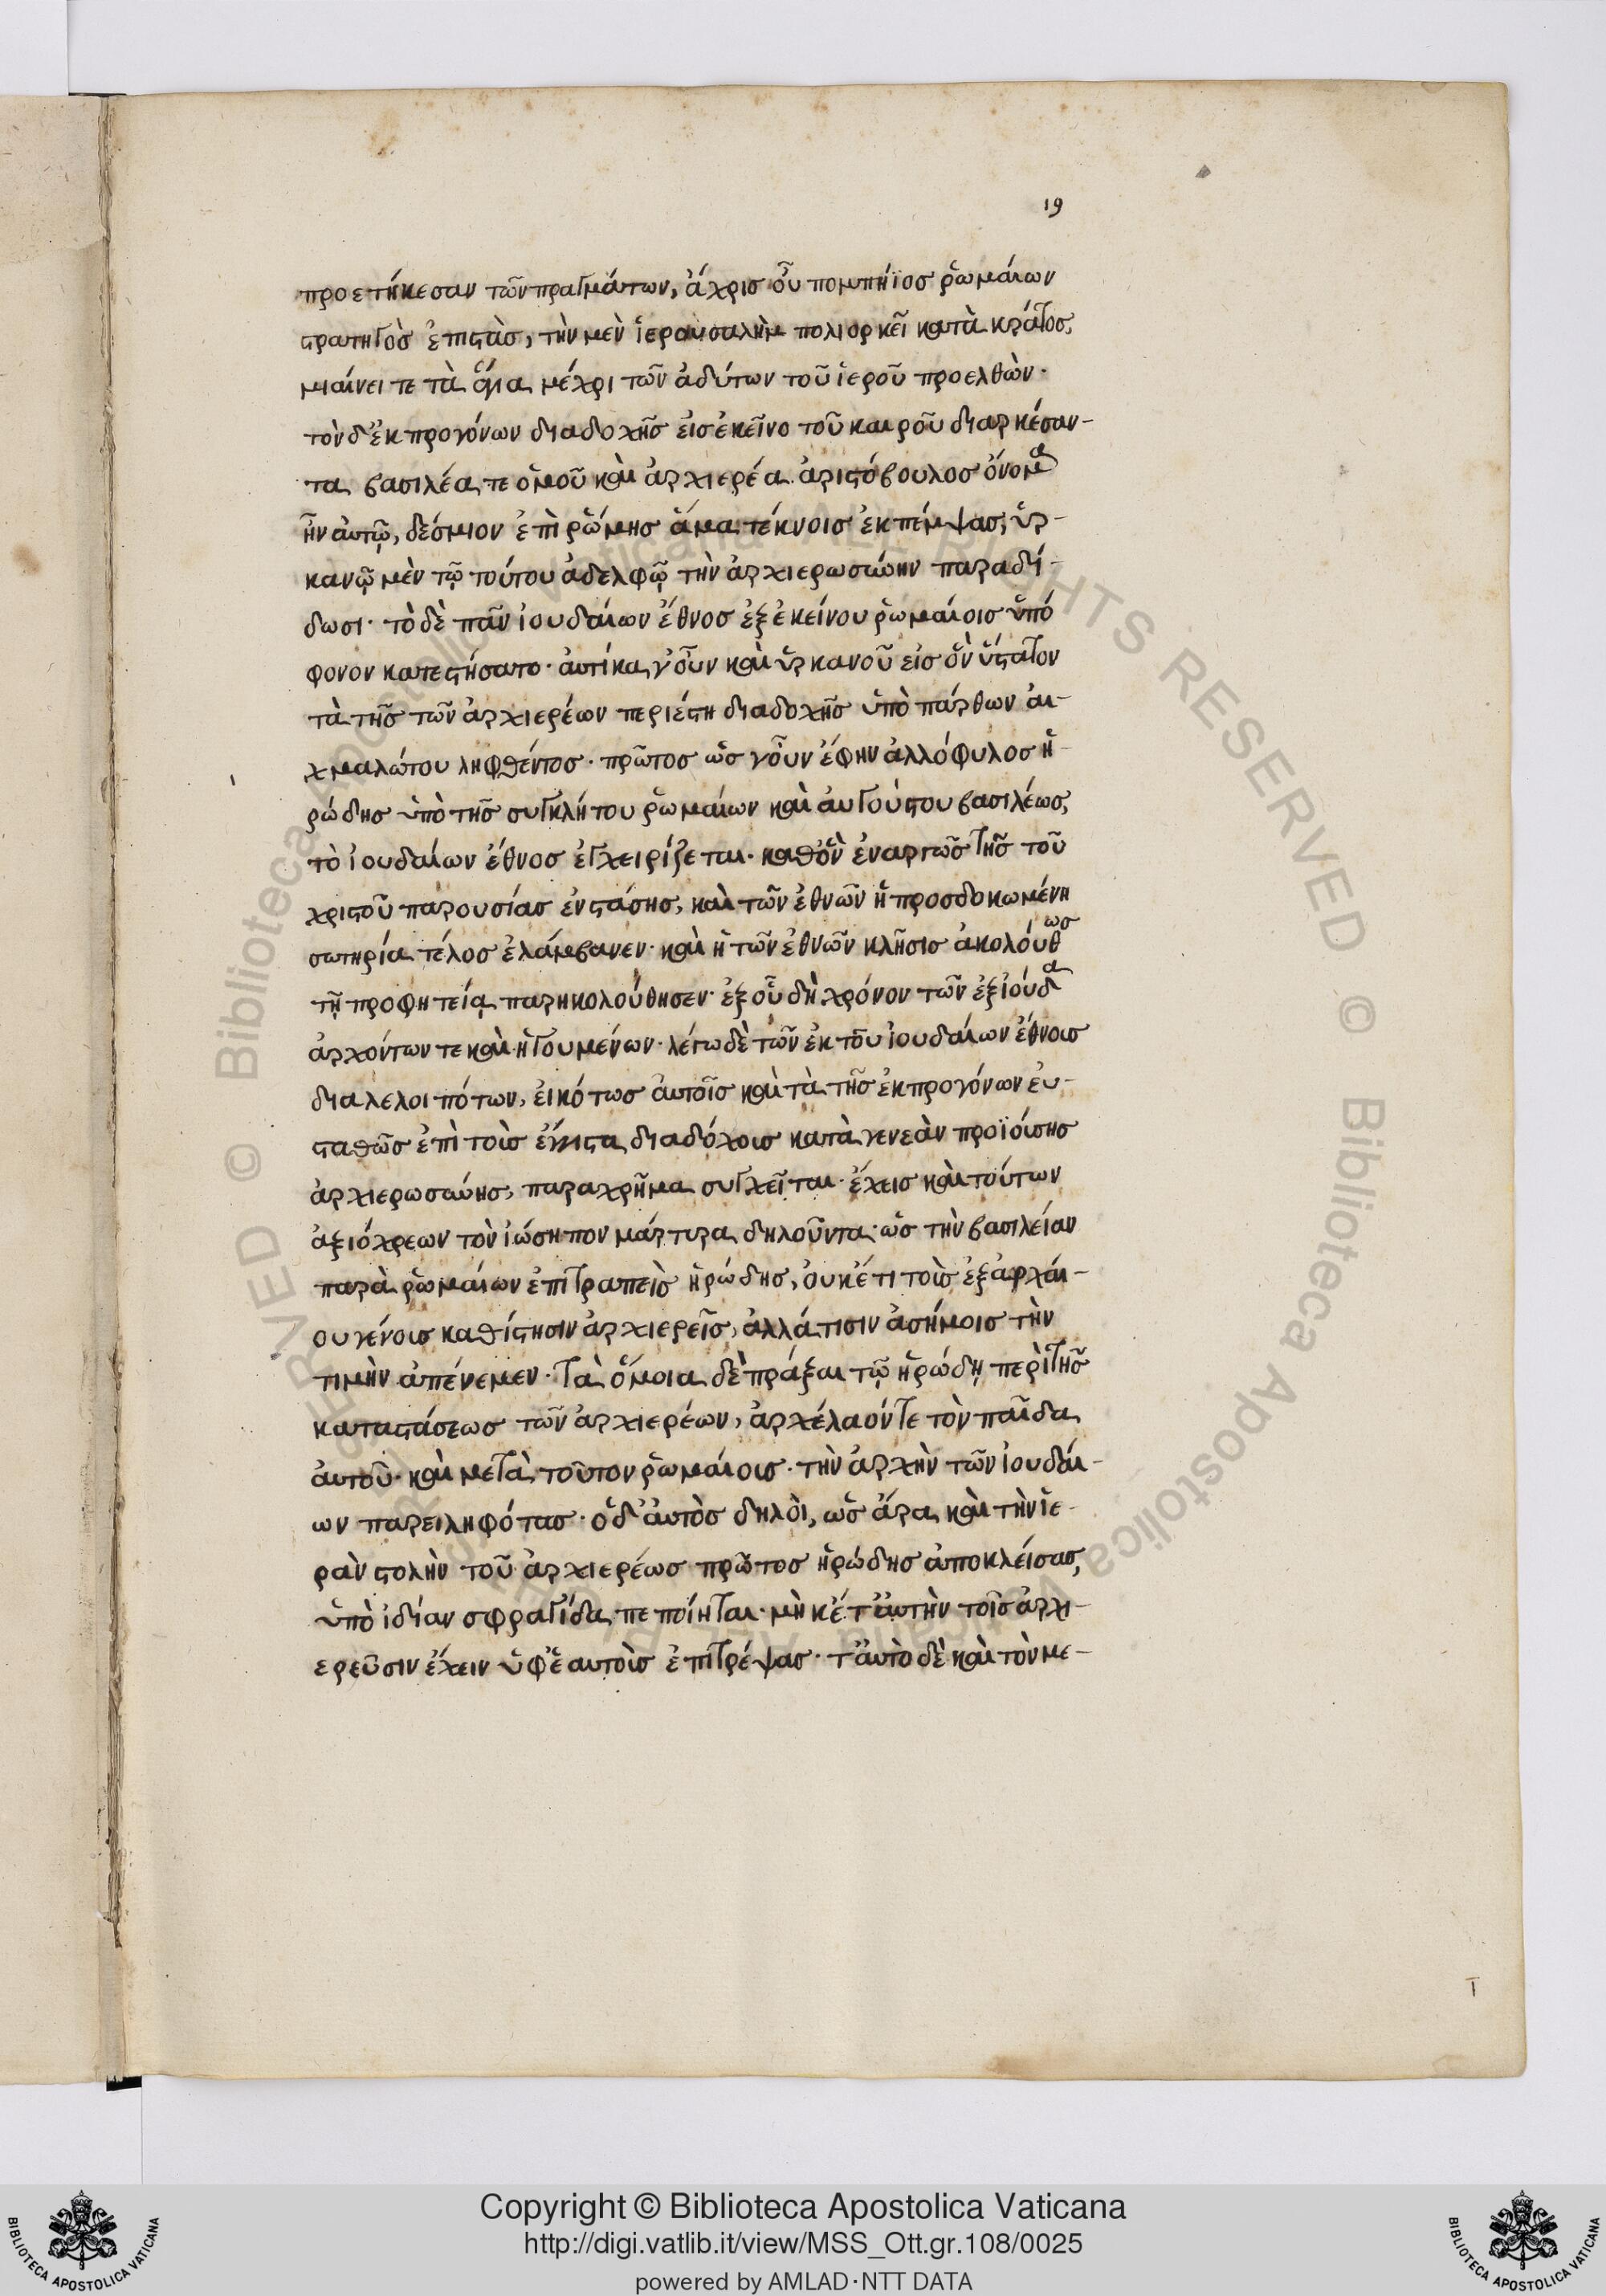 19
προετήκεσαν τῶν πραγμάτων, ἄχρισ οὗ πομπήϊοσ ῥωμαίων
στρατηγὸσ ἐπιστὰσ, τὴν μὲν ἱερουσαλὴμ πολιορκεῖ κατὰ κράτοσ,
μιαίνει τε τὰ ἅγια μέχρι τῶν ἀδύτων τοῦ ἱεροῦ προελθὼν·
τὸν δ' ἐκ προγόνων διαδοχῆσ εἰσ ἐκεῖνο τοῦ καιροῦ διαρκέσαν-
τα βασιλέα τε ὁμοῦ καὶ ἀρχιερέα ἀριστόβουλοσ ὄνομα
ἦν αὐτῷ, δέσμιον ἐπὶ ῥώμησ ἅμα τέκνοισ ἐκπέμψασ, ὑρ-
κανῷ μὲν τῷ τούτου ἀδελφῷ τὴν ἀρχιερωσύνην παραδί-
δωσι· τὸ δὲ πᾶν ἰουδαίων ἔθνοσ ἐξ ἐκείνου ῥωμαίοισ ὑπό
φονον κατεστήσατο· αὐτίκα γ' οὖν καὶ ὑρκανοῦ εἰσ ὃν ὕστατον
τὰ τῆσ τῶν ἀρχιερέων περιέστη διαδοχῆσ ὑπὸ πάρθων αἰ-
χμαλώτου ληφθέντοσ· πρῶτοσ ὡσ γοῦν ἔφην ἀλλόφυλοσ ἡ-
ρώδησ ὑπὸ τῆσ συγκλήτου ῥωμαίων καὶ αὐγούστου βασιλέωσ,
τὸ ἰουδαίων ἔθνοσ ἐγχειρίζεται· καθ' ὃν ἐναργῶσ τῆσ τοῦ
χριστοῦ παρουσίασ ἐνστάσησ, καὶ τῶν ἐθνῶν ἡ προσδοκωμένη
σωτηρία τέλοσ ἐλάμβανεν· καὶ ἡ τῶν ἐθνῶν κλῆσισ ἀκολούθωσ
τῇ προφητείᾳ παρηκολούθησεν· ἐξ οὗ δὴ χρόνον τῶν ἐξ ἰούδα
ἀρχόντων τε καὶ ἡγουμένων· λέγω δὲ τῶν ἐκ τοῦ ἰουδαίων ἔθνουσ
διαλελοιπότων, εἰκότωσ αὐτοῖσ καὶ τὰ τῆσ ἐκ προγόνων εὐ-
σταθῶσ ἐπὶ τοὺσ ἔγγιστα διαδόχουσ κατὰ γενεὰν προϊούσησ
ἀρχιερωσύνησ, παραχρῆμα συγχεῖται· ἔχεισ καὶ τούτων
ἀξιόχρεων τὸν ἰώσηπον μάρτυρα δηλοῦντα· ὡσ τὴν βασιλείαν
παρὰ ῥωμαίων ἐπιτραπεὶσ ἡρώδησ, οὐκέτι τοὺσ ἐξ ἀρχαί-
ου γένουσ καθίστησιν ἀρχιερεῖσ, ἀλλά τισιν ἀσήμοισ τὴν
τιμὴν ἀπένεμεν· τὰ ὅμοια δὲ πρᾶξαι τῷ ἡρώδῃ περὶ τῆσ
καταστάσεωσ τῶν ἀρχιερέων, ἀρχέλαόν τε τὸν παῖδα
αὐτοῦ· καὶ μετὰ τοῦτον ῥωμαίουσ· τὴν ἀρχὴν τῶν ἰουδαί-
ων παρειληφότασ· ὁ δ' αὐτὸσ δηλοῖ, ὡσ ἄρα καὶ τὴν ἱε-
ρὰν στολὴν τοῦ ἀρχιερέωσ πρῶτοσ ἡρώδησ ἀποκλείσασ,
ὑπὸ ἰδίαν σφραγίδα πεποίηται· μὴ κέτ' αὐτὴν τοῖσ ἀρχι-
ερεῦσιν ἔχειν ὑφ' ἑαυτοὺσ ἐπιτρέψασ· ταὐτὸ δὲ καὶ τὸν με-
Copyright © Biblioteca Apostolica Vaticana
http://digi.vatlib.it/view/MSS_Ott.gr.108/0025
powered by AMLAD·NTT DATA